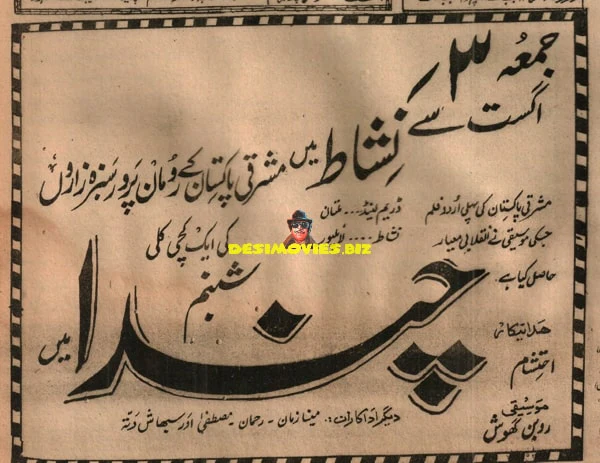 جمعہ ۳ اگست سے نِشاط میں
مشرقی پاکستان کے رومان پرور سبزہ زاروں
کی ایک کچی کلی
شبنم
چندا
میں
مشرقی پاکستان کی پہلی اُردو فلم
جسکی موسیقی نے انقلابی معیار
حاصل کیا ہے۔
ڈریم لینڈ... ملتان
نشاط.... لائلپور
DESIMOVIES.BIZ
ھدایتکار
احتشام
موسیقی
روبن گھوش
دیگر اداکاران:۔ مینا زمان - رحمان - مصطفیٰ اور سبھاش دتہ